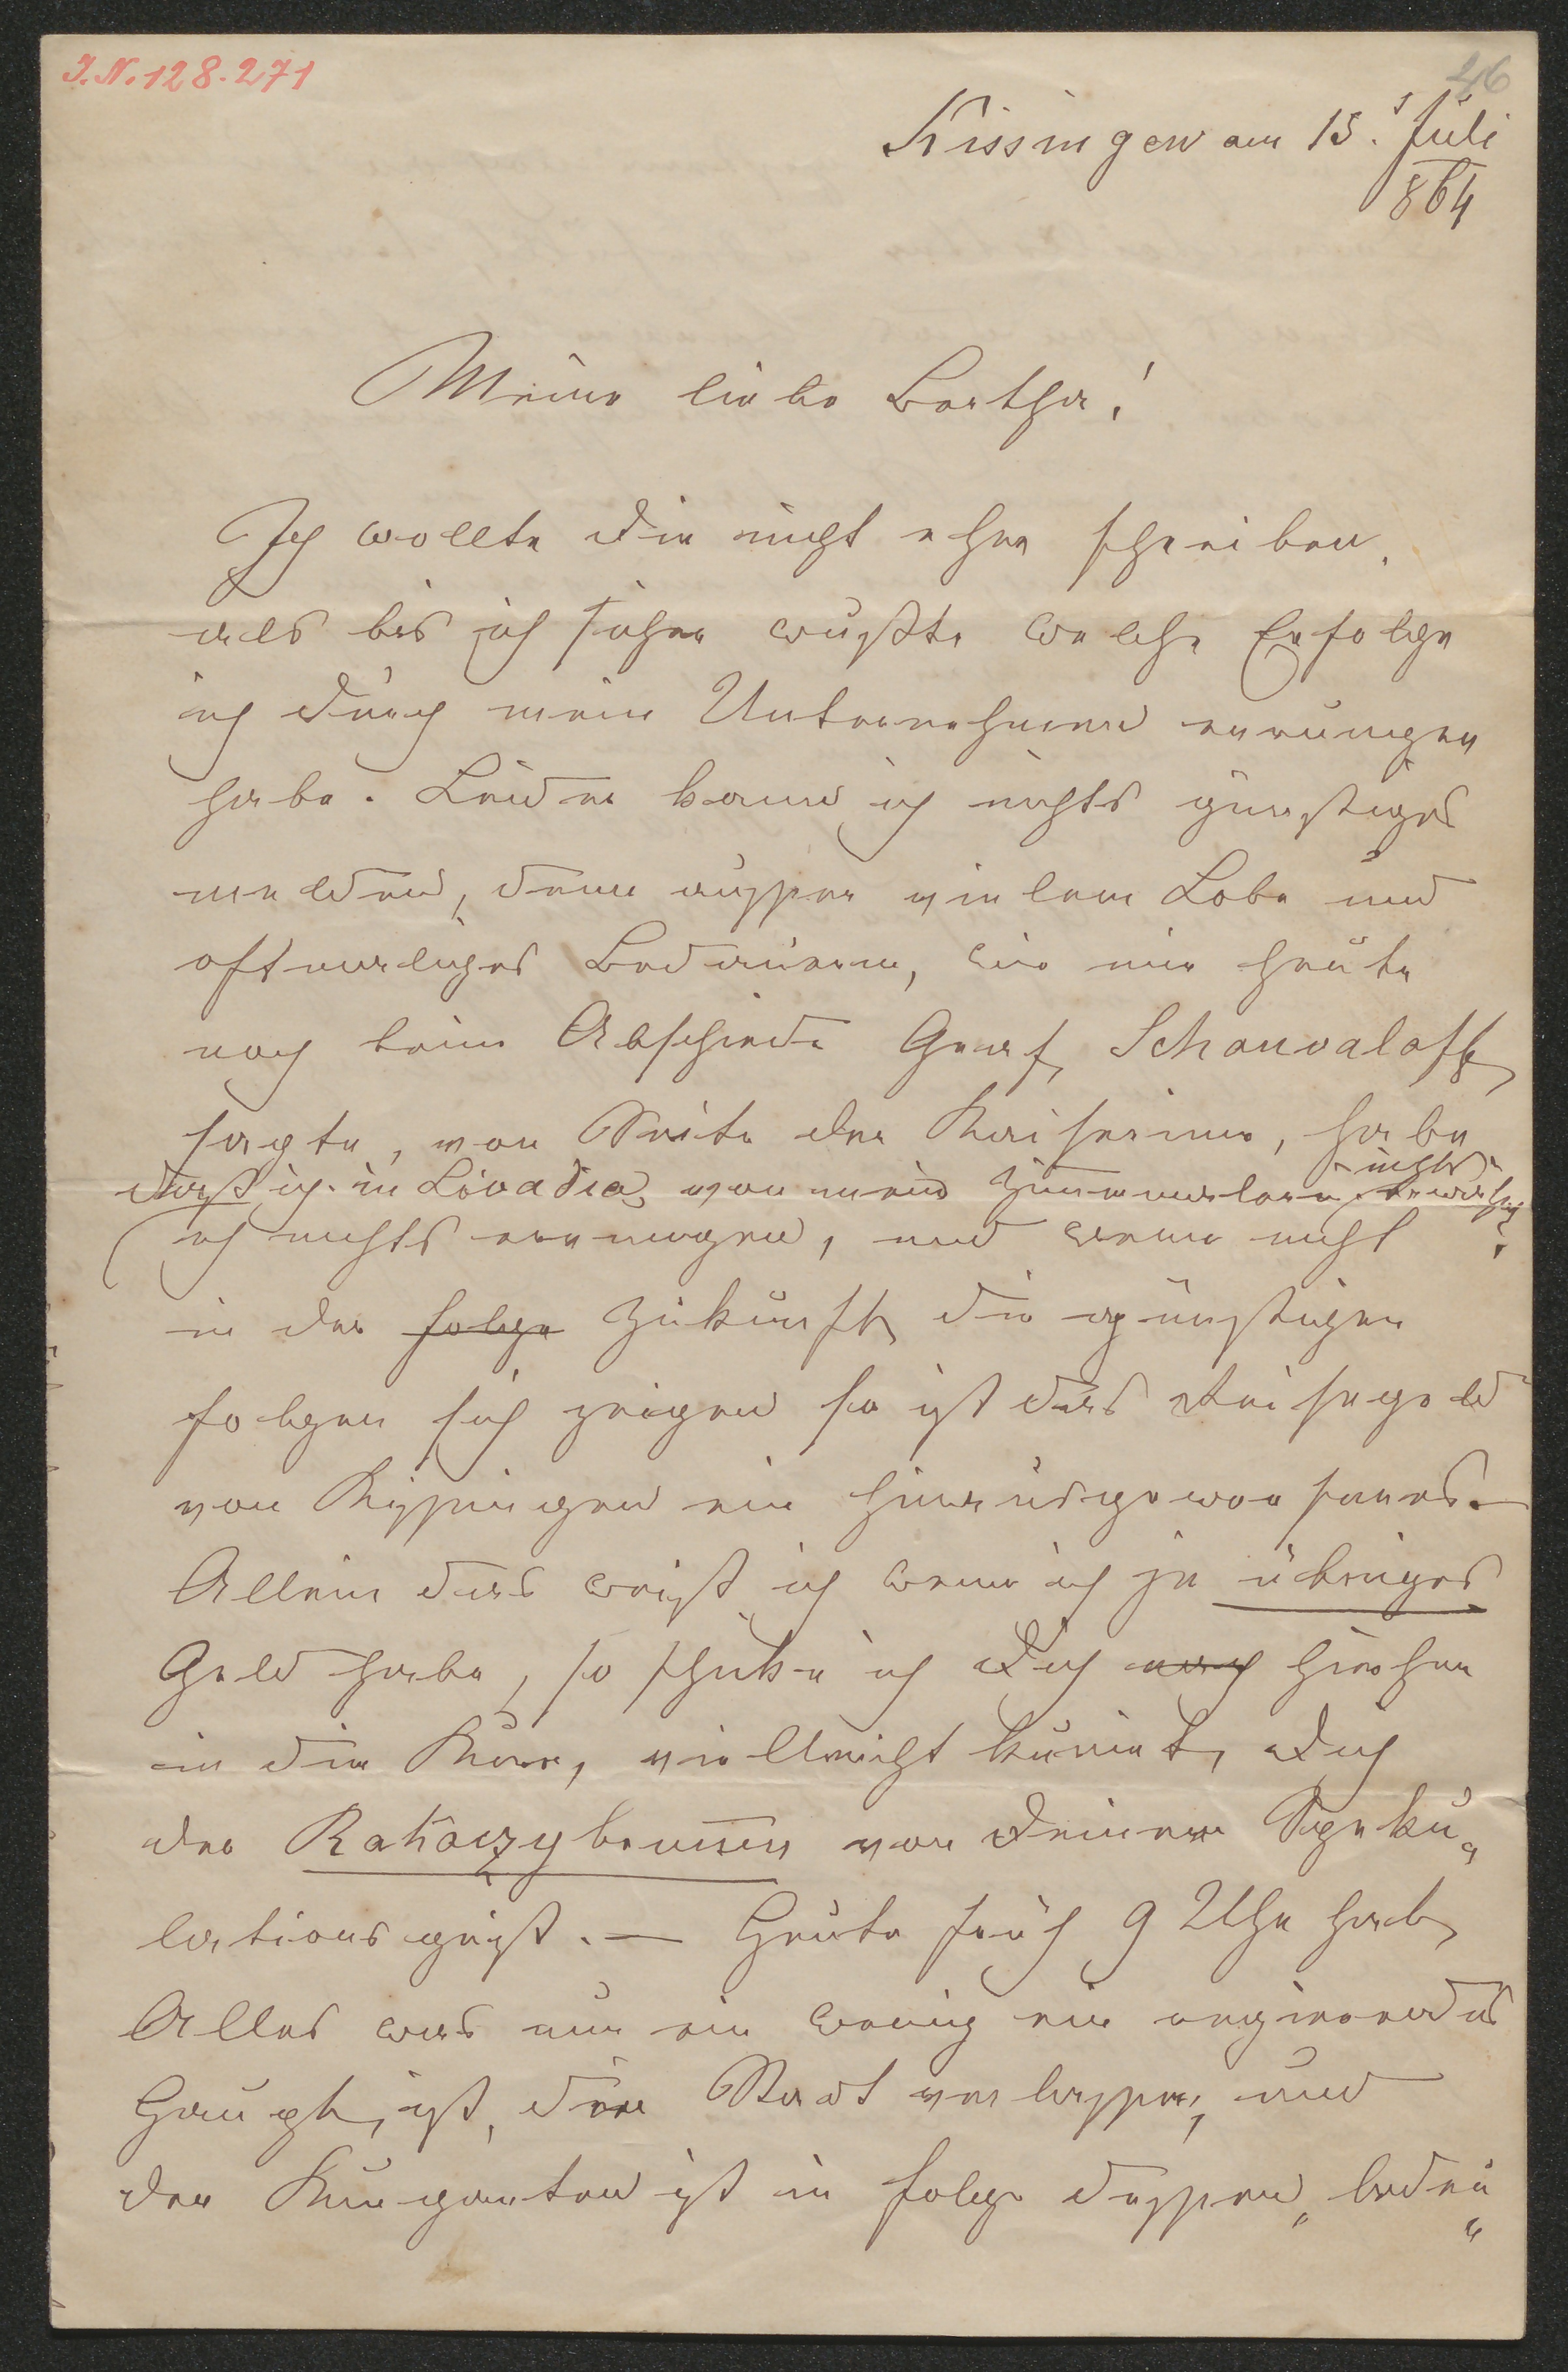 I.N. 128.271
46
Kissingen am 15. Juli
864
Meine liebe Bertha!
Ich wollte Dir nicht eher schreiben,
als bis ich sicher wußte welche Erfolge
ich durch mein Unternehmen errungen
habe. Leider kann ich nichts günstiges
melden, denn ausser vielem Lobe und
oftmaliges Bedauern, wie mir heute
noch beim Abschiede Graf Schouvaloff
sagte, von Seite der Kaiserin, habe
daß ich in Livadia von mein Zimmermalern nichts
ich nichts errungen, und wenn nicht
in der folge Zukunft die günstigen
folgen sich zeigen so ist das Reisegeld
von Kissingen ein hinausgeworfenes.
Allein das weiß ich wenn ich je übriges
Geld habe, so schicke ich Dich nach hierher
in die Kur, vielleicht kurirt Dich
der Rakoczybrunnen von Deinem Speku„
lationsgeist. — Heute früh 9 Uhr hat
Alles was nur ein wenig ein regierendes
Haupt ist, die Stadt verlassen, und
der Kurgarten ist in folge dessen bedeu„